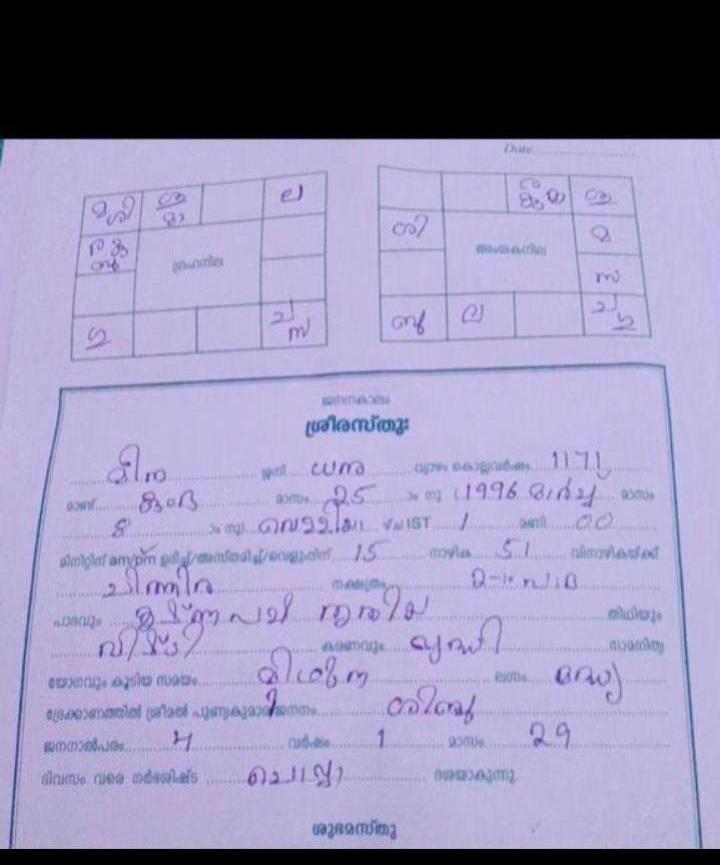 Date
മ ശി ശു മാ ല
ഗ്രഹനില
ഗു
ച സ
ശി
മ
അംശകനില
സ
ബു ല ച ഗു
ജനനകാലം
ശ്രീരസ്തുഃ
മീന ഇനി ധന വ്യാഴം കൊല്ലവർഷം 1171
മാണ്ട് കുംഭ മാസം 25 ാം നു (1996 മാർച്ച് മാസം
8 ാം നു) വെള്ളിയാഴ്ച IST 1 മണി 00
മിനിറ്റിന് am/pm ഉദിച്ച്/അസ്തമിച്ച്/വെളുപ്പിന് 15 നാഴിക 51 വിനാഴികയ്ക്ക്
ചിത്തിര നക്ഷത്രം
പാദവും കൃഷ്ണപക്ഷ തൃതീയ തിഥിയും
വിഷ്ടി കരണവും വൃദ്ധി നാമനിത്യ
യോഗവും കൂടിയ സമയം മിഥുന ലഗ്നം മദ്ധ്യ
ദ്രേക്കാണത്തിൽ ശ്രീമതി പുണ്യകുമാര ജനനം
ജനനാൽപരം 4 വർഷം 1 മാസം 29
ദിവസം വരെ ഗർഭശിഷ്ട ചൊവ്വാ ദശയാകുന്നു.
ശുഭമസ്തു